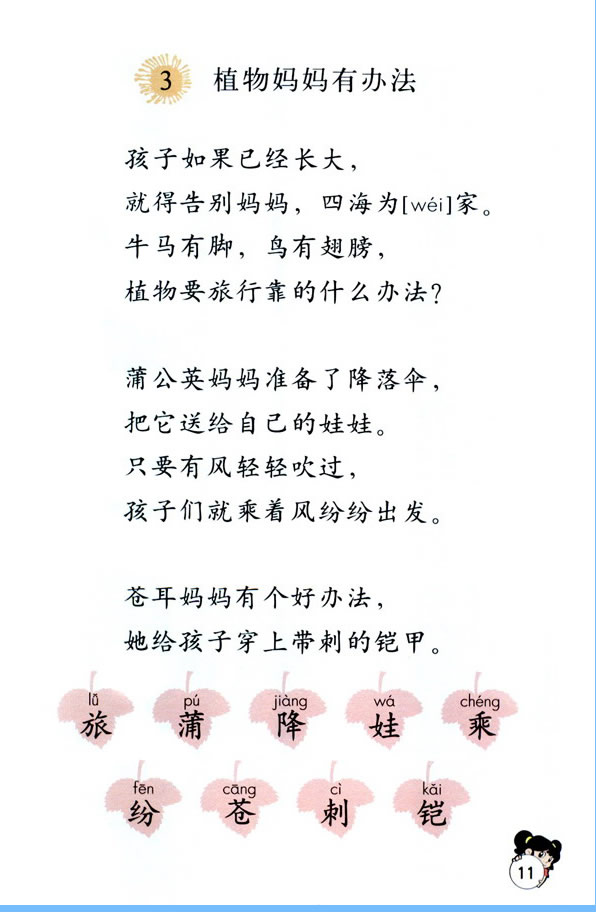 3 植物妈妈有办法
孩子如果已经长大，
就得告别妈妈，四海为[wéi]家。
牛马有脚，鸟有翅膀，
植物要旅行靠的什么办法？
蒲公英妈妈准备了降落伞，
把它送给自己的娃娃。
只要有风轻轻吹过，
孩子们就乘着风纷纷出发。
苍耳妈妈有个好办法，
她给孩子穿上带刺的铠甲。
lǚ pú jiàng wá chéng
旅 蒲 降 娃 乘
fēn cāng cì kǎi
纷 苍 刺 铠
11